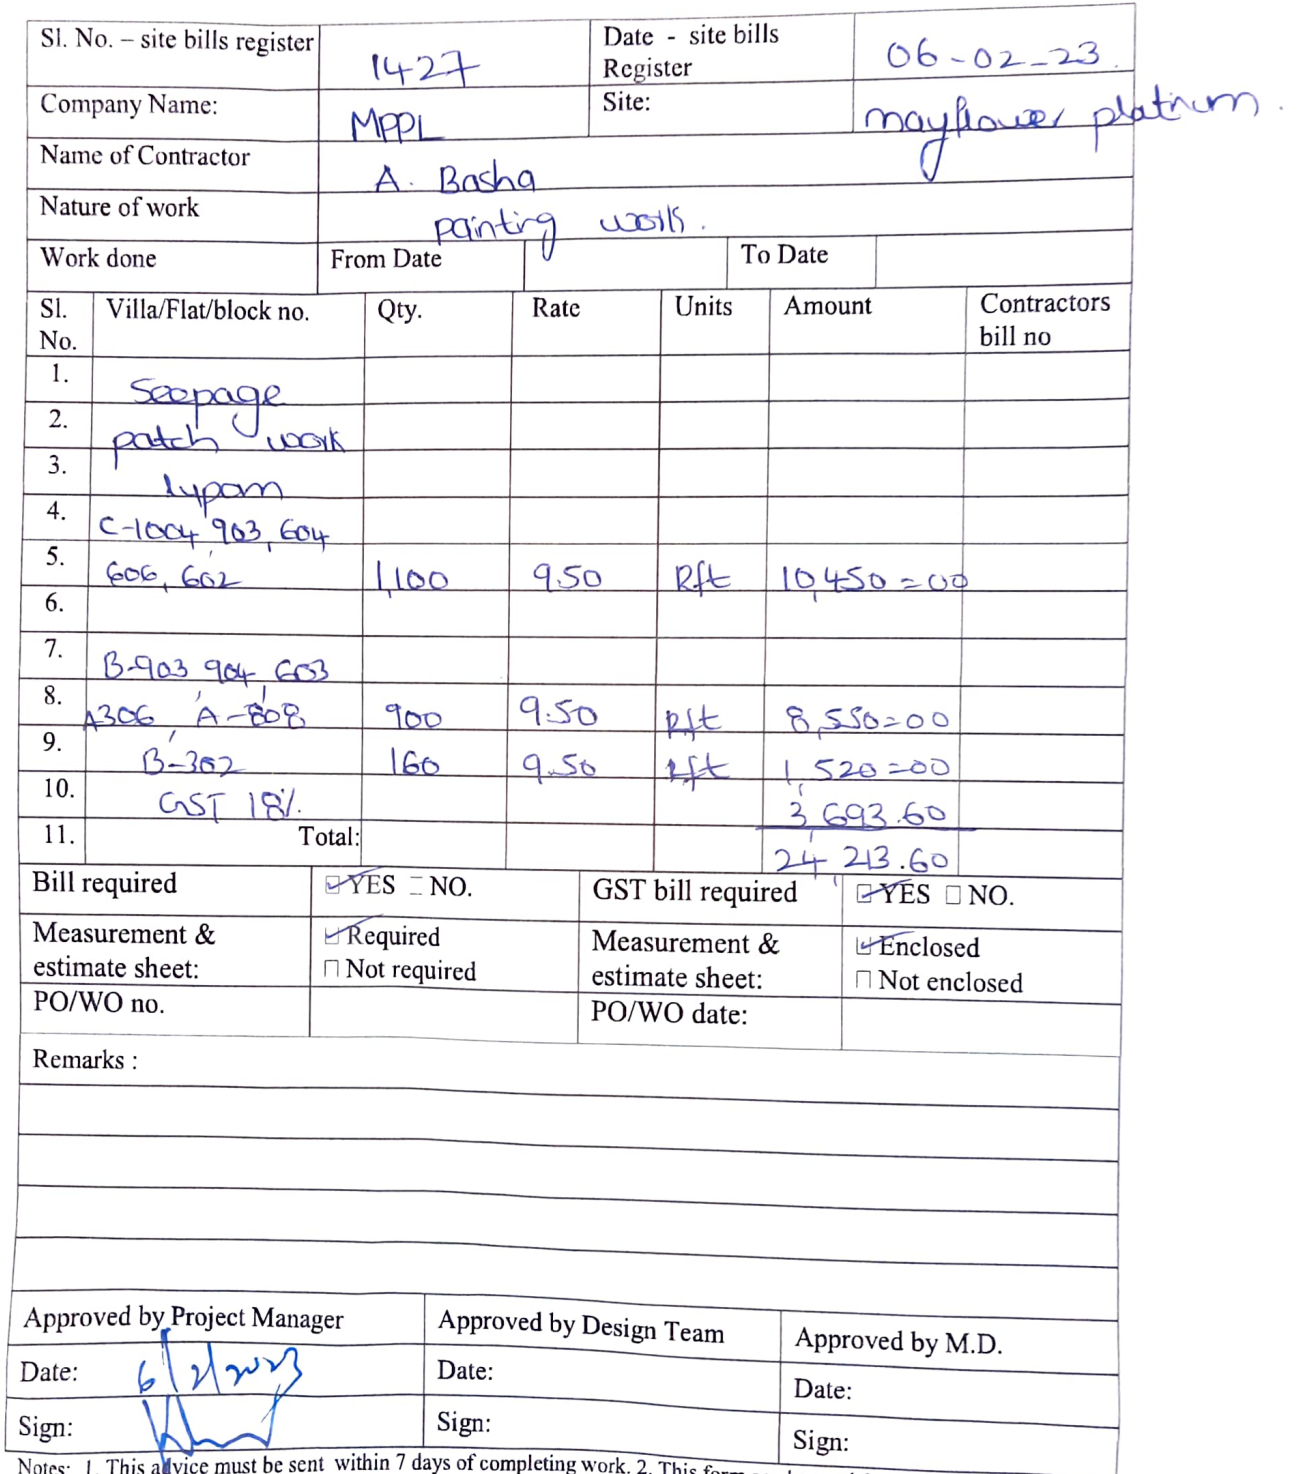 Sl. No. – site bills register 1427 Date - site bills Register 06-02-23.
Company Name: MPPL Site: mayflower platinum.
Name of Contractor A. Basha
Nature of work painting work.
Work done From Date To Date
Sl. No. Villa/Flat/block no. Qty. Rate Units Amount Contractors bill no
1. Seepage
2. patch work
3. lypam
4. C-1004, 903, 604
5. 606, 602 1,100 9.50 Rft 10,450=00
6.
7. B-903, 904, 603
8. A306, A-808 900 9.50 Rft 8,550=00
9. B-302 160 9.50 Rft 1,520=00
10. GST 18% 3,693.60
11. Total: 24,213.60
Bill required ☑ YES □ NO. GST bill required ☑ YES □ NO.
Measurement & estimate sheet: ☑ Required □ Not required Measurement & estimate sheet: ☑ Enclosed □ Not enclosed
PO/WO no. PO/WO date:
Remarks :
Approved by Project Manager Approved by Design Team Approved by M.D.
Date: 6/2/2023 Date: Date:
Sign: Sign: Sign:
Notes: 1. This advice must be sent within 7 days of completing work. 2. This form